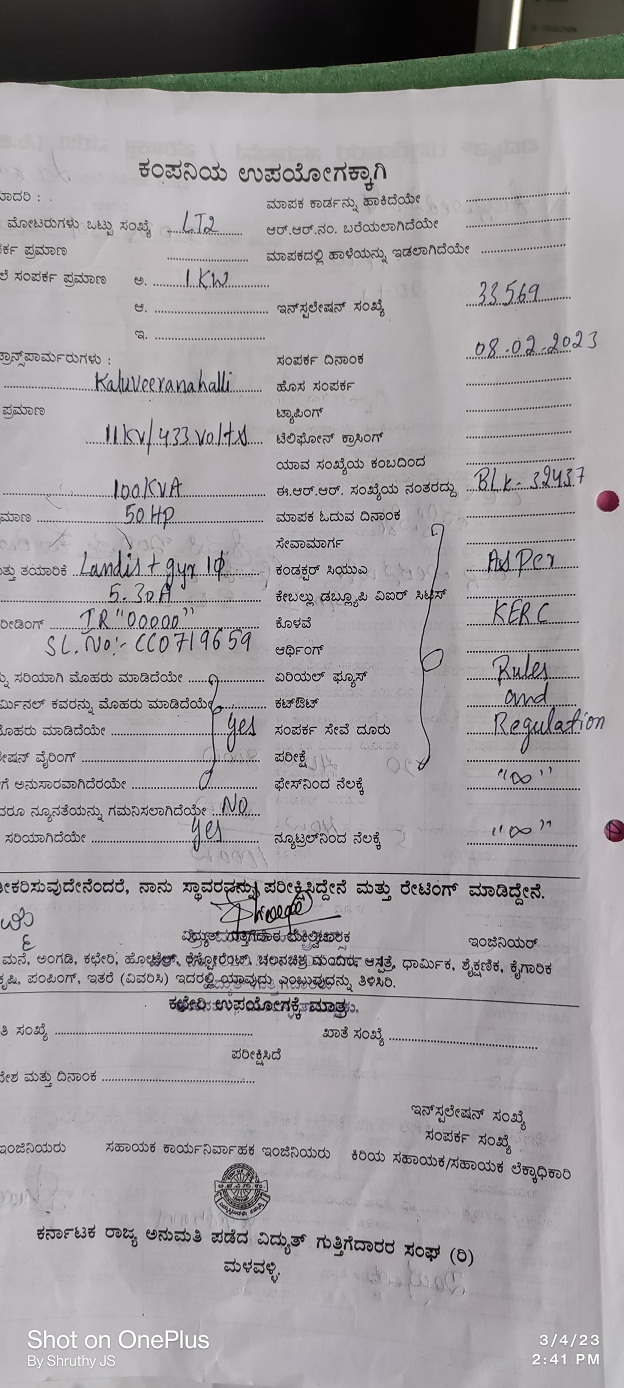 ಕಂಪನಿಯ ಉಪಯೋಗಕ್ಕಾಗಿ
ಮಾದರಿ : . ಮಾಪಕ ಕಾರ್ಡನ್ನು ಹಾಕಿದೆಯೇ
ಮೋಟರುಗಳು ಒಟ್ಟು ಸಂಖ್ಯೆ LT2 ಆರ್.ಆರ್.ನಂ. ಬರೆಯಲಾಗಿದೆಯೇ
ಪ್ರಮಾಣ ಮಾಪಕದಲ್ಲಿ ಹಾಳೆಯನ್ನು ಇಡಲಾಗಿದೆಯೇ
ಸಂಪರ್ಕ ಪ್ರಮಾಣ ಅ. 1 KW
ಆ. ಇನ್‌ಸ್ಟಲೇಷನ್ ಸಂಖ್ಯೆ 33569
ಇ.
ಟ್ರಾನ್ಸ್‌ಪಾರ್ಮರುಗಳು : ಸಂಪರ್ಕ ದಿನಾಂಕ 08.02.2023
Kaluveeranahalli ಹೊಸ ಸಂಪರ್ಕ
ಪ್ರಮಾಣ ಟ್ಯಾಪಿಂಗ್
11KV/433 Volts ಟೆಲಿಫೋನ್ ಕ್ರಾಸಿಂಗ್
ಯಾವ ಸಂಖ್ಯೆಯ ಕಂಬದಿಂದ
100KVA ಈ.ಆರ್.ಆರ್. ಸಂಖ್ಯೆಯ ನಂತರದ್ದು BLK-32437
50 HP ಮಾಪಕ ಓದುವ ದಿನಾಂಕ
ಸೇವಾಮಾರ್ಗ
ಮತ್ತು ತಯಾರಿಕೆ Landis + gyr 1ϕ ಕಂಡಕ್ಟರ್ ಸಿಯುಎ As Per
5-30A ಕೇಬಲ್ಲು ಡಬ್ಲ್ಯೂಪಿ ವಿಐರ್ ಸಿಟಿಸ್
ರೀಡಿಂಗ್ IR "00000" ಕೊಳವೆ KERC
SL.No:- CC0719659 ಆರ್ಥಿಂಗ್
ಸರಿಯಾಗಿ ಮೊಹರು ಮಾಡಿದೆಯೇ ಏರಿಯಲ್ ಫ್ಯೂಸ್ Rules
ಕವರನ್ನು ಮೊಹರು ಮಾಡಿದೆಯೇ ಕಟ್‌ಔಟ್ and
ಮೊಹರು ಮಾಡಿದೆಯೇ Yes ಸಂಪರ್ಕ ಸೇವೆ ದೂರು Regulation
ವೈರಿಂಗ್ ಪರೀಕ್ಷೆ
ಅನುಸಾರವಾಗಿದೆರಯೇ ಫೇಸ್‌ನಿಂದ ನೆಲಕ್ಕೆ "∞"
ನ್ಯೂನತೆಯನ್ನು ಗಮನಿಸಲಾಗಿದೆಯೇ No
ಸರಿಯಾಗಿದೆಯೇ Yes ನ್ಯೂಟ್ರಲ್‌ನಿಂದ ನೆಲಕ್ಕೆ "∞"
ನಾನು ಸ್ಥಾವರವನ್ನು ಪರೀಕ್ಷಿಸಿದ್ದೇನೆ ಮತ್ತು ರೇಟಿಂಗ್ ಮಾಡಿದ್ದೇನೆ.
ಇಂಜಿನಿಯರ್
ಮನೆ, ಅಂಗಡಿ, ಕಛೇರಿ, ಹೋಟೆಲ್, ರೆಸ್ಟೋರೆಂಟ್, ಚಲನಚಿತ್ರ ಮಂದಿರ, ಆಸ್ಪತ್ರೆ, ಧಾರ್ಮಿಕ, ಶೈಕ್ಷಣಿಕ, ಕೈಗಾರಿಕ
ಕೃಷಿ, ಪಂಪಿಂಗ್, ಇತರೆ (ವಿವರಿಸಿ) ಇದರಲ್ಲಿ ಯಾವುದು ಎಂಬುವುದನ್ನು ತಿಳಿಸಿರಿ.
ಕಛೇರಿ ಉಪಯೋಗಕ್ಕೆ ಮಾತ್ರ
ಸಂಖ್ಯೆ ಖಾತೆ ಸಂಖ್ಯೆ
ಪರೀಕ್ಷಿಸಿದೆ
ಮತ್ತು ದಿನಾಂಕ
ಇನ್‌ಸ್ಟಲೇಷನ್ ಸಂಖ್ಯೆ
ಸಂಪರ್ಕ ಸಂಖ್ಯೆ
ಇಂಜಿನಿಯರು ಸಹಾಯಕ ಕಾರ್ಯನಿರ್ವಾಹಕ ಇಂಜಿನಿಯರು ಕಿರಿಯ ಸಹಾಯಕ/ಸಹಾಯಕ ಲೆಕ್ಕಾಧಿಕಾರಿ
ಕರ್ನಾಟಕ ರಾಜ್ಯ ಅನುಮತಿ ಪಡೆದ ವಿದ್ಯುತ್ ಗುತ್ತಿಗೆದಾರರ ಸಂಘ (ರಿ)
ಮಳವಳ್ಳಿ.
Shot on OnePlus
By Shruthy JS
3/4/23
2:41 PM